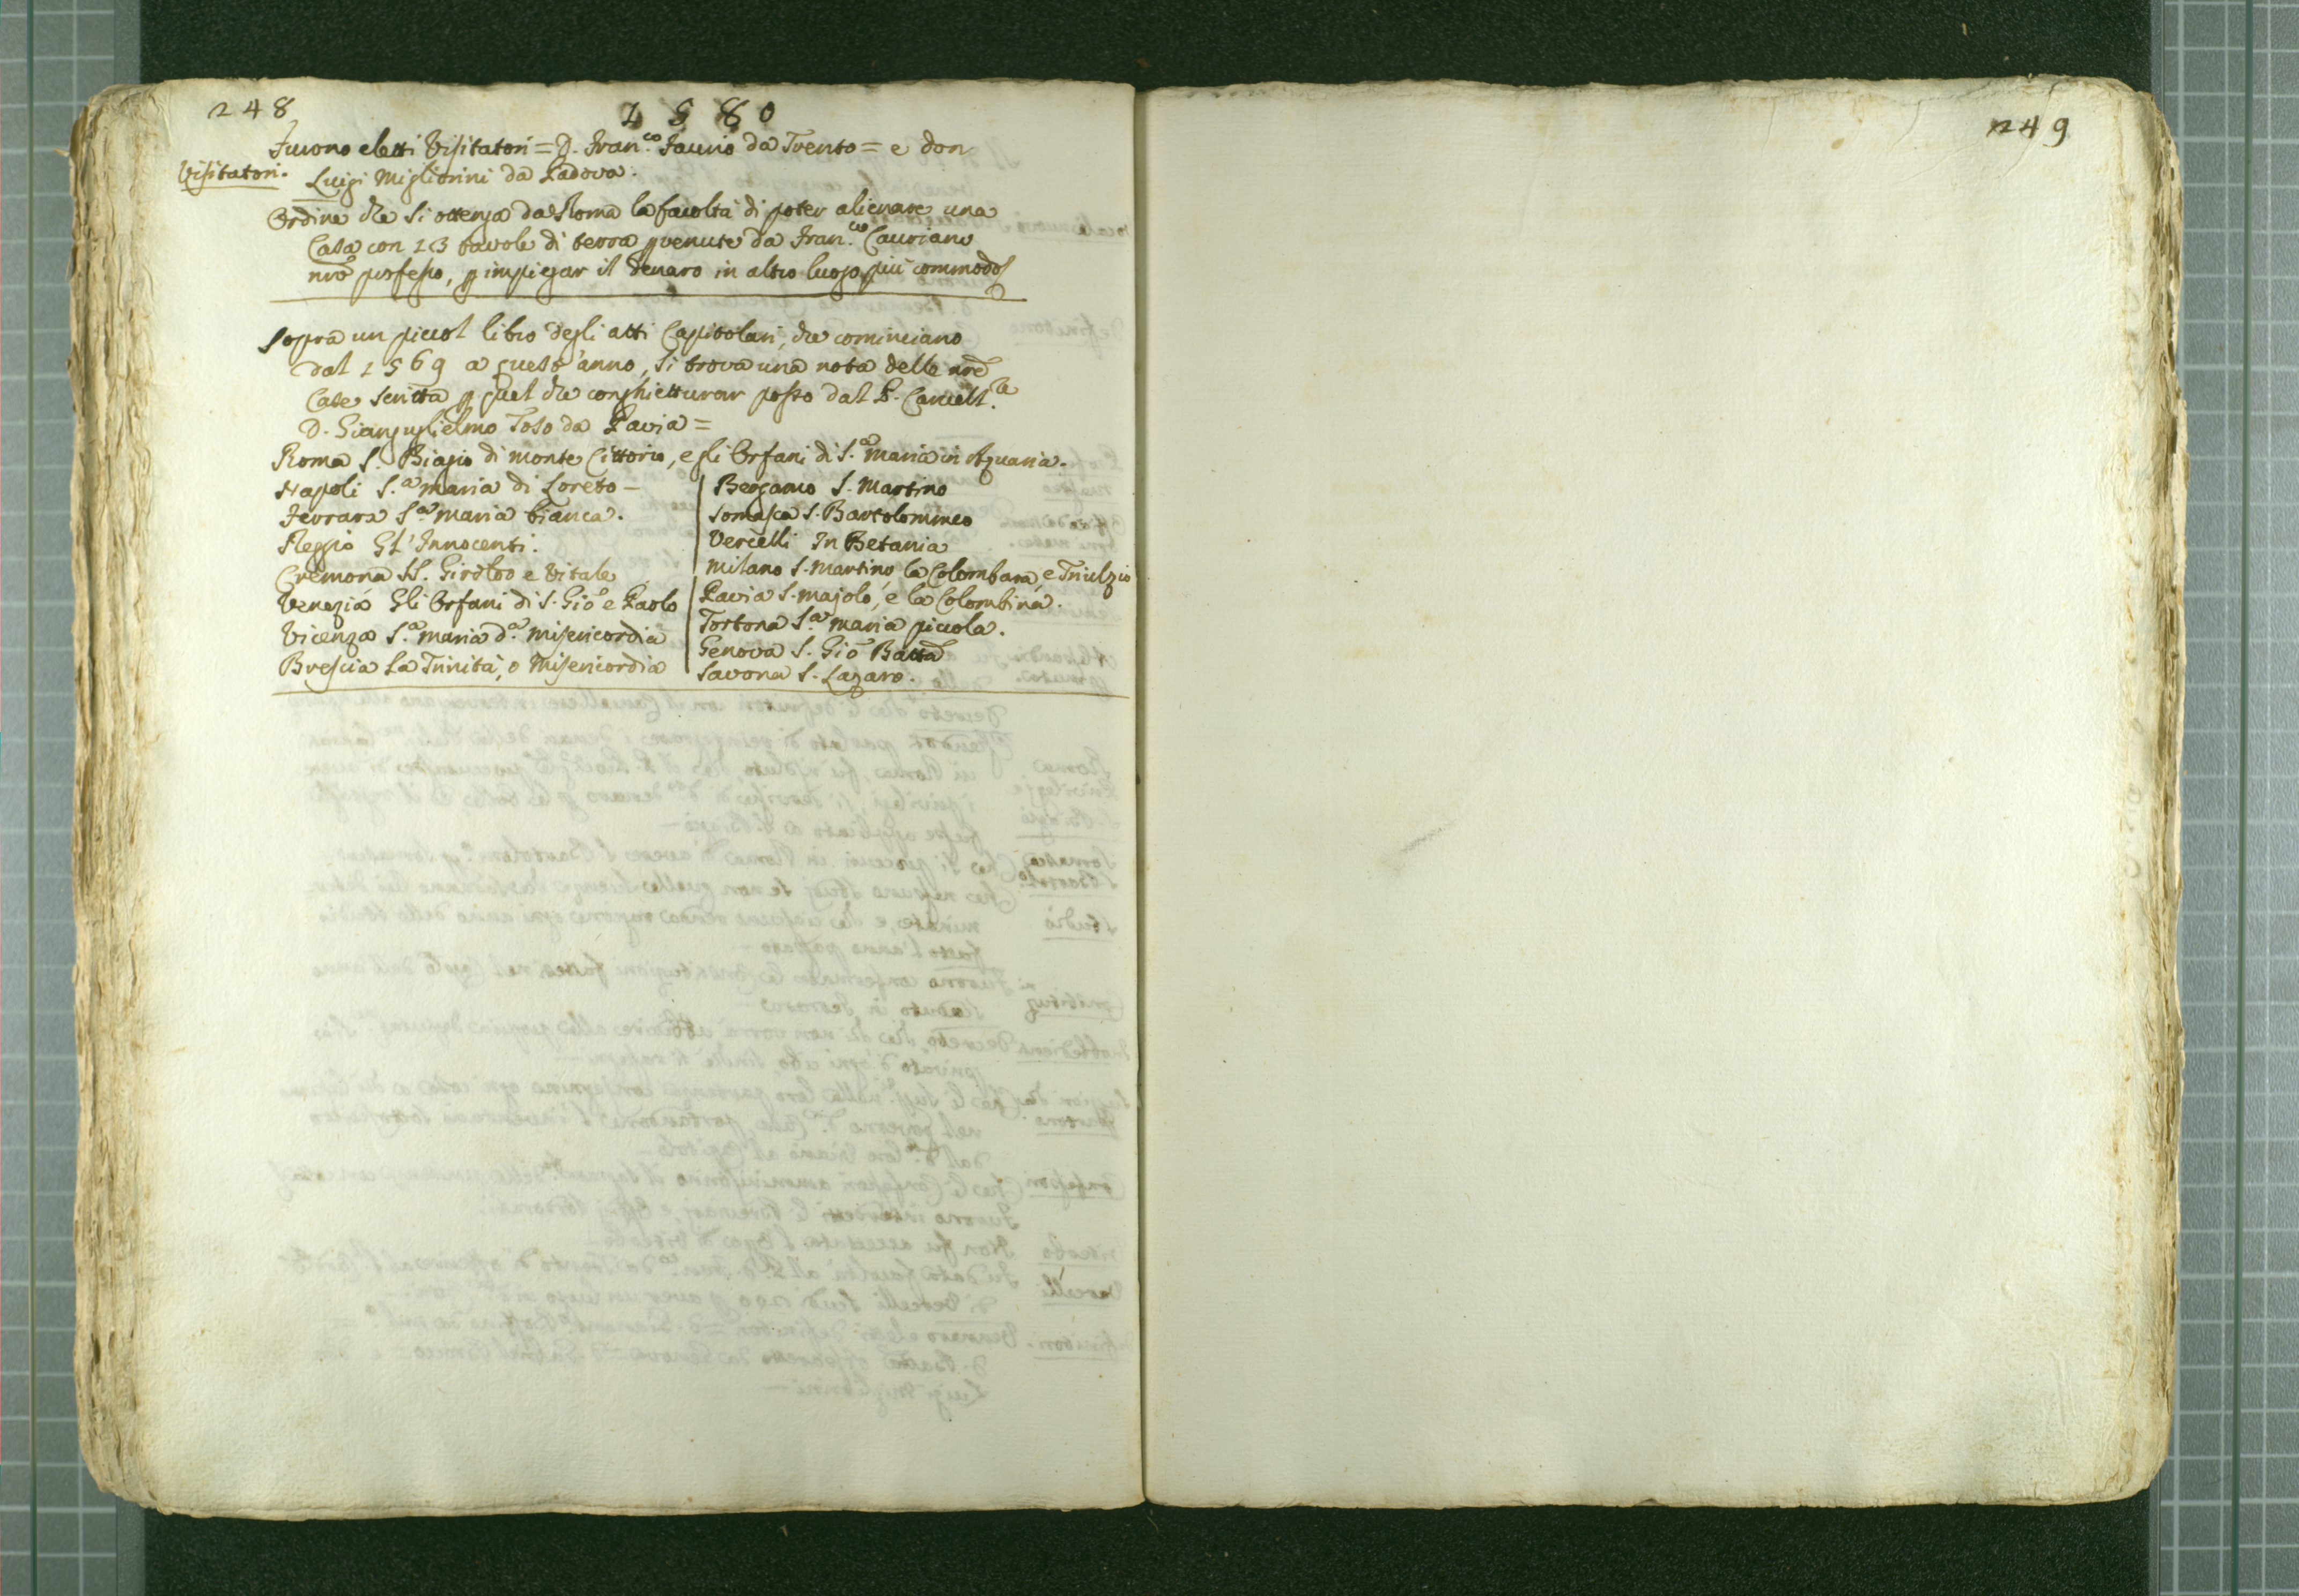 248
1580
Furono eletti Visitatori = D. Fran.co Faurio da Trento = e don
Visitatori.
Luigi Migliorini da Padova.
Ordine che si ottenga da Roma la facoltà di poter alienare una
Casa con 13 tavole di terra pvenute da Fran.co Cauriano
nrō professo, p impiegar il denaro in altro luogo più commodo
Sopra un piccol libro degli atti Capitolari, che cominciano
dal 1569 a quest'anno, si trova una nota delle nrē
Case scritta p quel che conghietturar posso dal P. Cancell.re
D. Gianguglielmo Toso da Pavia =
Roma S. Biagio di monte Cittorio, e gli Orfani di S.a Maria in Aquaria.
Napoli S.a Maria di Loreto –
Ferrara S.a Maria bianca.
Reggio Gl'Innocenti.
Cremona SS. Girolmo e Vitale
Venezia Gli Orfani di S. Gio e Paolo
Vicenza S.a Maria d.a Misericordia
Brescia La Trinità, o Misericordia
Bergamo S. Martino
Somasca S. Bartolommeo
Vercelli In Betania
Milano S. Martino la Colombara, e Triulzio
Pavia S. Majolo, e la Colombina.
Tortona S.a Maria piccola.
Genova S. Gio Batta
Savona S. Lazaro.
249